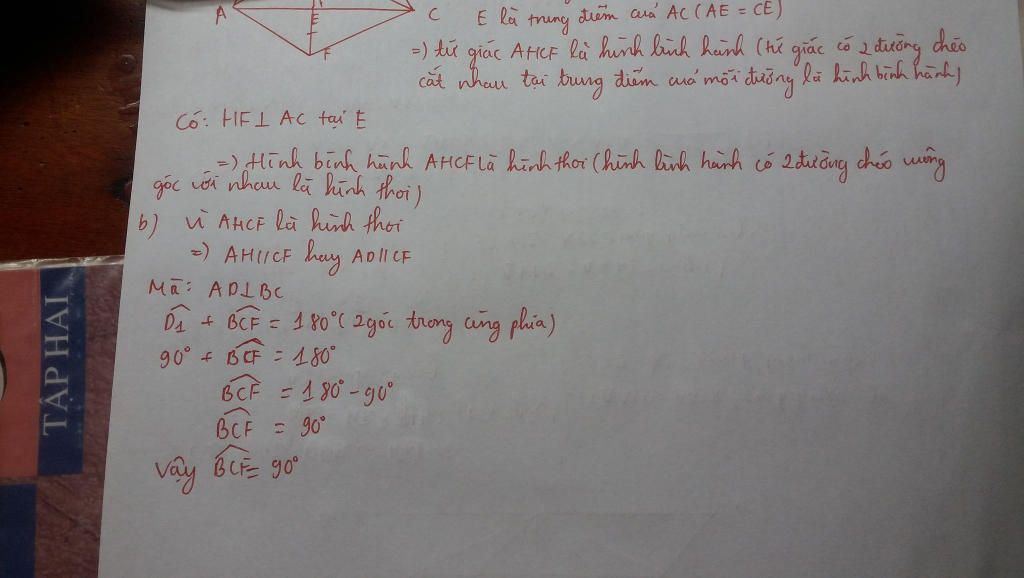 A
E
C
F
E là trung điểm của AC (AE = CE)
=) tứ giác AHCF là hình bình hành (tứ giác có 2 đường chéo
cắt nhau tại trung điểm của mỗi đường là hình bình hành)
Có: HF⊥ AC tại E
=) Hình bình hành AHCF là hình thoi (hình bình hành có 2 đường chéo vuông
góc với nhau là hình thoi)
b) Vì AHCF là hình thoi
=) AH//CF hay AD//CF
Mà: AD⊥BC
D̂1 + B̂CF = 180° (2 góc trong cùng phía)
90° + B̂CF = 180°
B̂CF = 180° - 90°
B̂CF = 90°
Vậy B̂CF = 90°
TẬP HAI